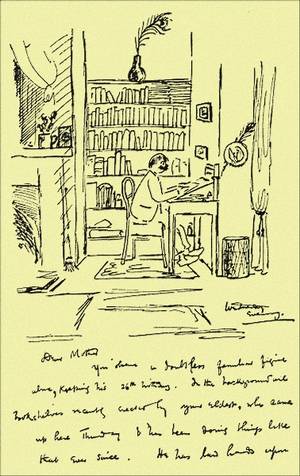 Wednesday
Evening.
Dear Mother
You have a doubtless familiar figure
here, keeping his 26th birthday. In the background are
Bookshelves recently erected by your eldest, who came
up here Thursday & has been doing things like
that ever since. He has laid hands upon